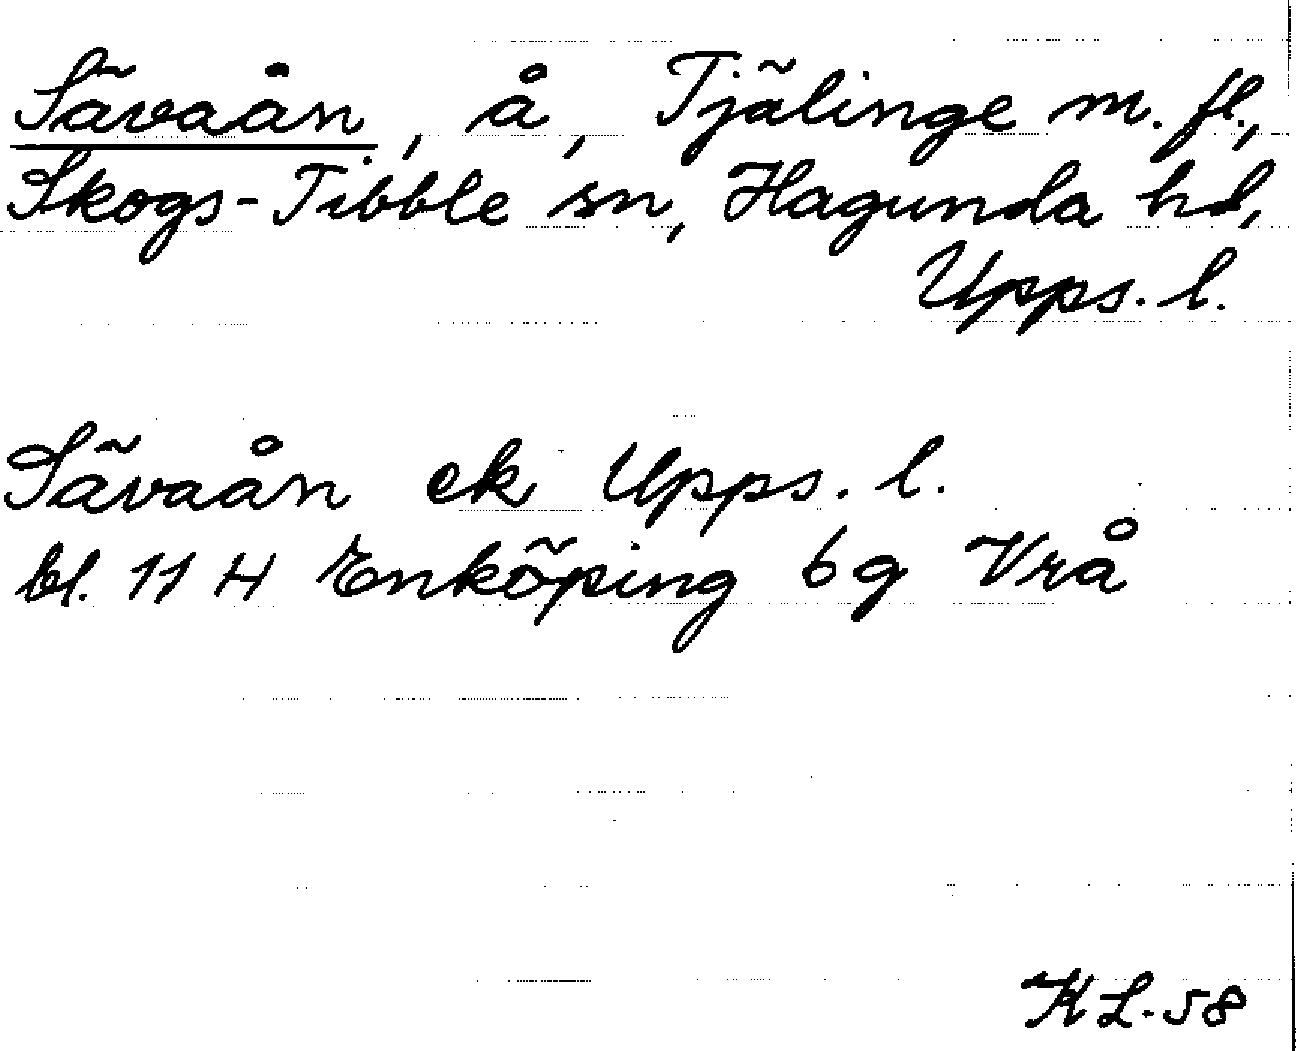 Sävaån, å, Tjälinge m. fl.,
Skogs-Tibble sn, Hagunda hd,
Upps. l.
Sävaån ek Upps. l.
bl. 11 H Enköping 6g Vrå
KL.58